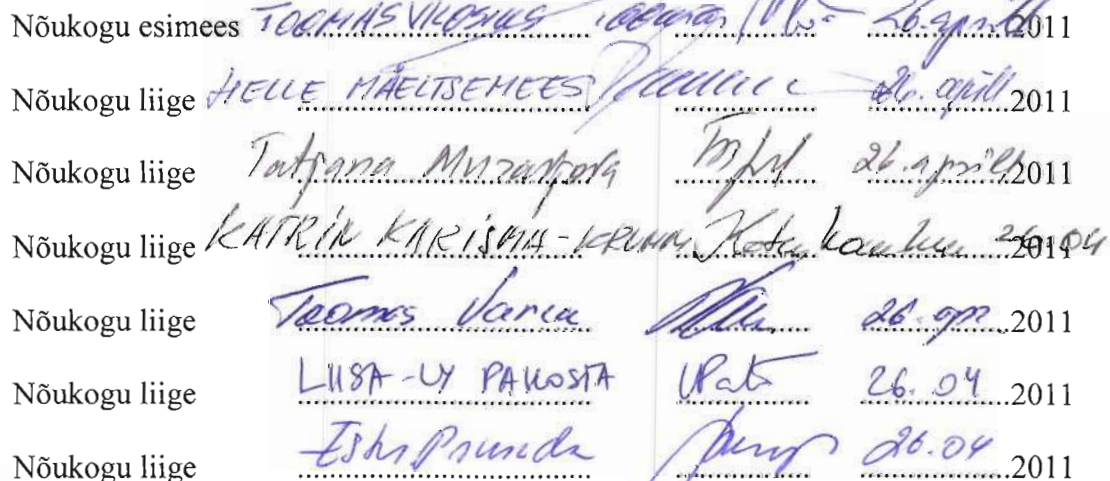 Nõukogu esimees TOOMAS VILOSIUS 26. aprill 2011
Nõukogu liige HELLE MÄELTSEMEES 26. aprill 2011
Nõukogu liige Tatjana Muravjova 26. aprill 2011
Nõukogu liige KATRIN KARISMA-KRUMM 26.04 2011
Nõukogu liige Toomas Varek 26. apr. 2011
Nõukogu liige LIISA-LY PAKOSTA 26. 04 2011
Nõukogu liige 26.04 2011